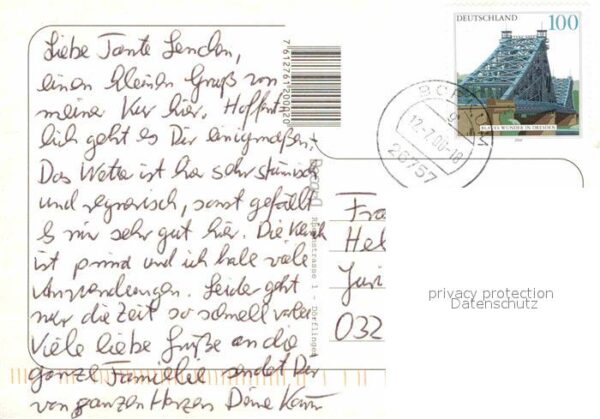 Liebe Tante Lenchen,
einen kleinen Gruß von
meiner Kur hier. Hoffent-
lich geht es Dir einigmaßen.
Das Wetter ist hier sehr stürmisch
und regnerisch, sonst gefällt
es mir sehr gut hier. Die Klinik
ist prima und ich habe viele
Anwendungen. Leider geht
nur die Zeit so schnell
Viele liebe Grüße an die
ganze Familie sendet Dir
von ganzem Herzen Deine
7612761200020
DEUTSCHLAND 100
BLAUES WUNDER IN DRESDEN
2000
BORKUM
12.-7.00-18
26757
Fra
Hel
Juri
032
privacy protection
Datenschutz